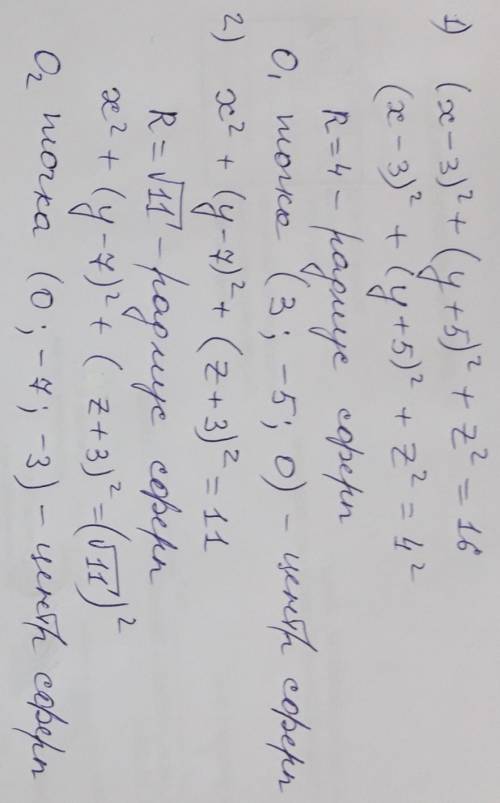 1) (x-3)² + (y+5)² + z² = 16
(x-3)² + (y+5)² + z² = 4²
R=4 - радиус сферы
O₁ точка (3; -5; 0) - центр сферы
2) x² + (y-7)² + (z+3)² = 11
R = √11 - радиус сферы
x² + (y-7)² + (z+3)² = (√11)²
O₂ точка (0; -7; -3) - центр сферы